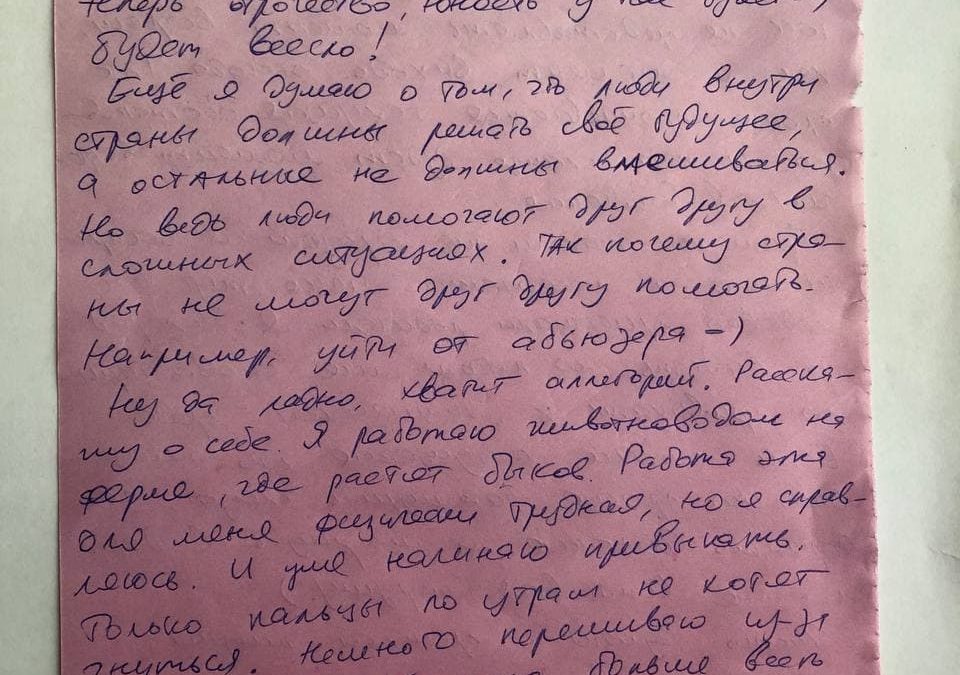 теперь отрочество, юность у нас будет,
будет весело!
Ещё я думаю о том, что люди внутри
страны должны решать своё будущее,
а остальные не должны вмешиваться.
Но ведь люди помогают друг другу в
сложных ситуациях. Так почему стра-
ны не могут друг другу помогать.
Например, уйти от абьюзера =)
Ну да ладно, хватит аллегорий. Расска-
жу о себе. Я работаю животноводом на
ферме, где растят быков. Работа эта
для меня физически трудная, но я справ-
ляюсь. И уже начинаю привыкать.
Только пальцы по утрам не хотят
гнуться. Немного переживаю из-за
больше всего